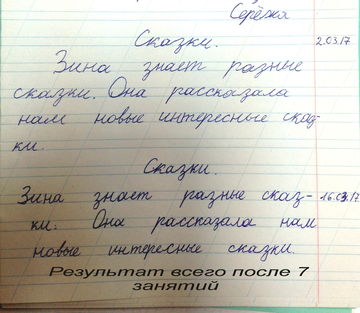 Серёжа
Сказки. 2.03.17
Зина знает разные
сказки. Она рассказала
нам новые интересные сказ-
ки.
Сказки.
Зина знает разные сказ- 16.03.17
ки. Она рассказала нам
новые интересные сказки.
Результат всего после 7
занятий